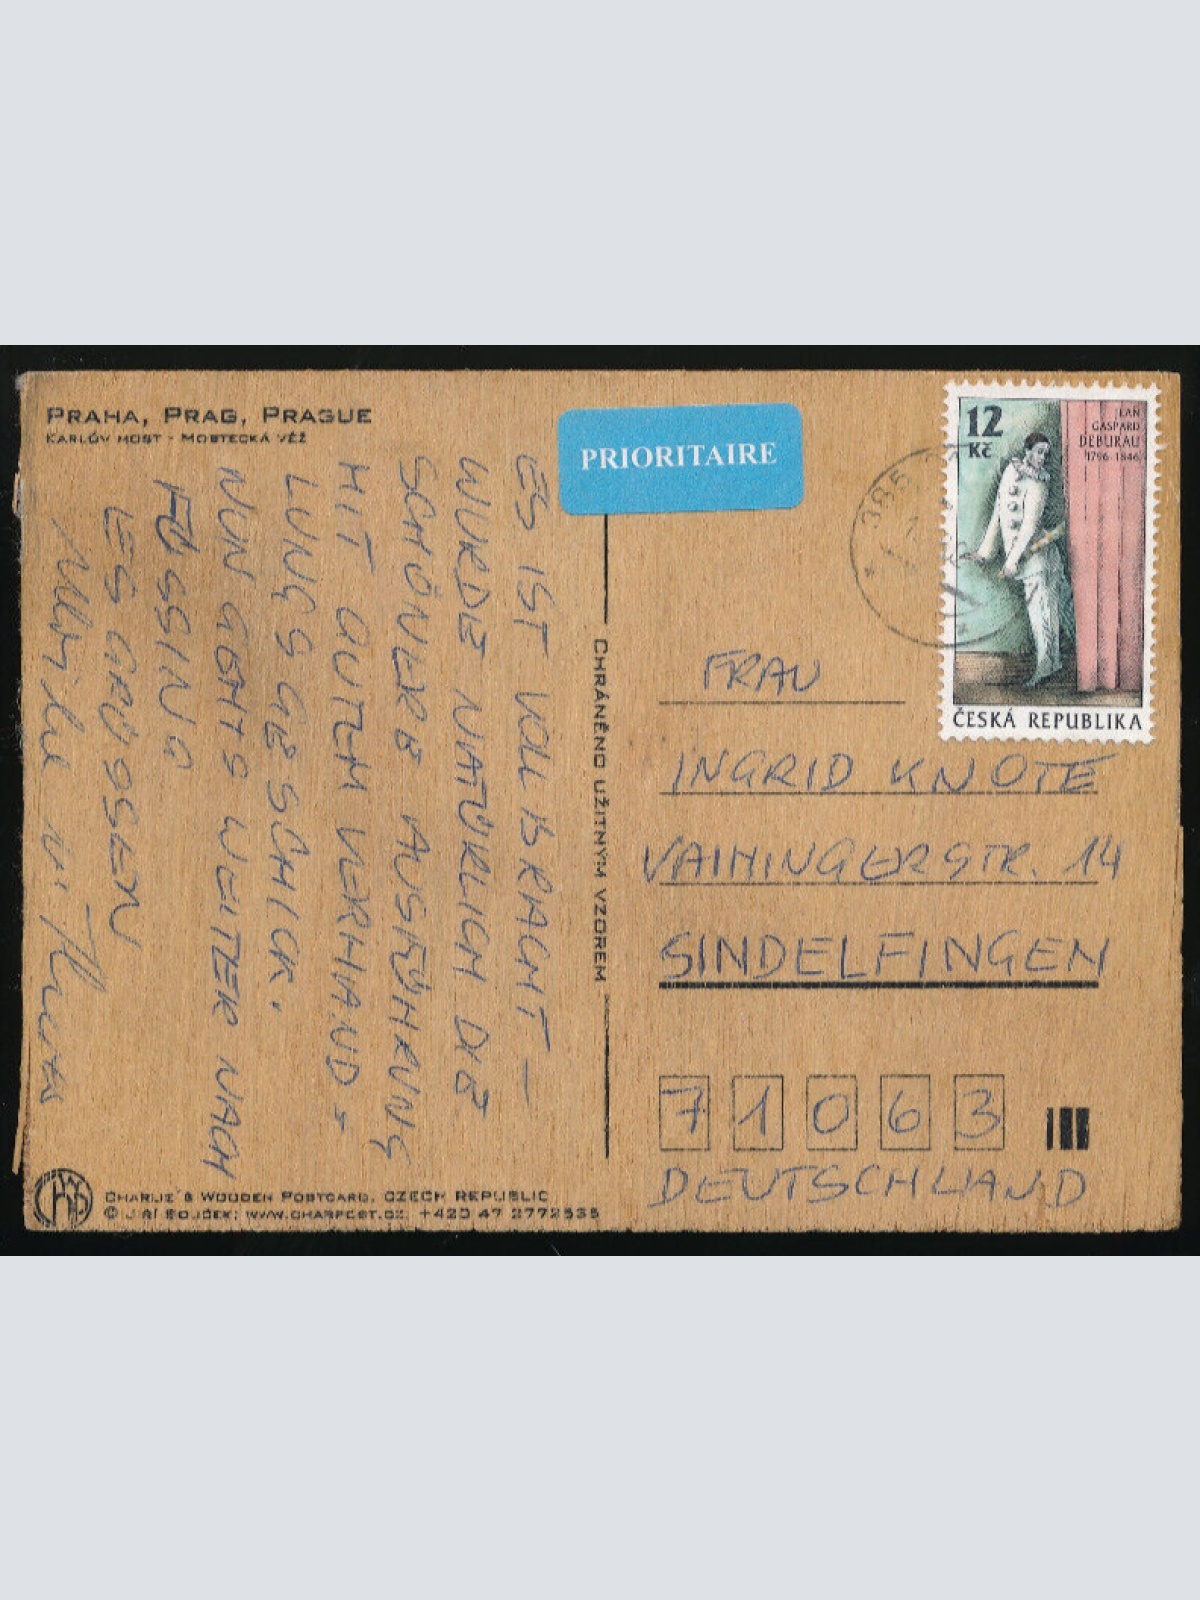 PRAHA, PRAG, PRAGUE
KARLŮV MOST - MOSTECKÁ VĚŽ
ES IST VOLLBRACHT –
WURDE NATÜRLICH DIE
SCHÖNERE AUSFÜHRUNG
MIT GUTEM VERHAND-
LUNGSGESCHICK.
NUN GEHTS WEITER NACH
FÜSSING
ES GRÜSSEN
CHARLIE'S WOODEN POSTCARD, CZECH REPUBLIC
© JIŘÍ BOUČEK; WWW.CHARPOST.CZ, +420 47 2772535
CHRÁNĚNO UŽITNÝM VZOREM
PRIORITAIRE
12
Kč
GASPARD
DEBURAU
1796-1846
ČESKÁ REPUBLIKA
385
FRAU
INGRID KNOTE
VAIHINGERSTR. 14
SINDELFINGEN
71063
DEUTSCHLAND